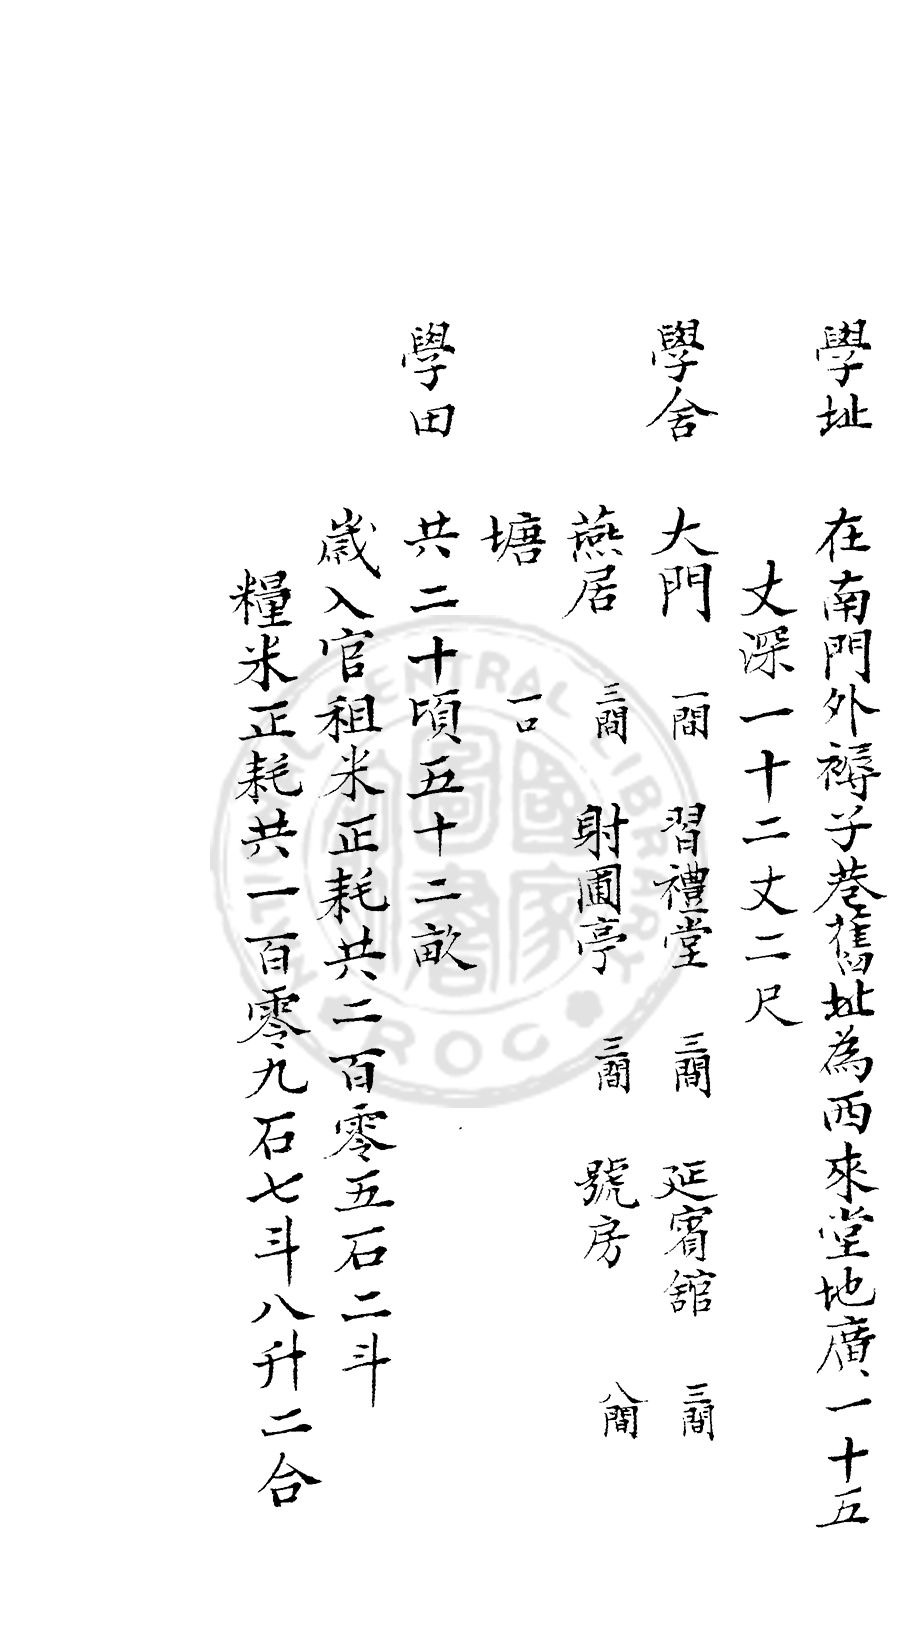 學址　在南門外褥子巷舊址為西來堂地廣一十五
丈深一十二丈二尺
學舍　大門　一間　習禮堂　三間　延賓舘　三間
燕居　三間　射圃亭　三間　號房　八間
塘　一口
學田　共二十頃五十二畝
歲入官租米正耗共二百零五石二斗
糧米正耗共一百零九石七斗八升二合
NATIONAL CENTRAL LIBRARY
ROC
國家圖書